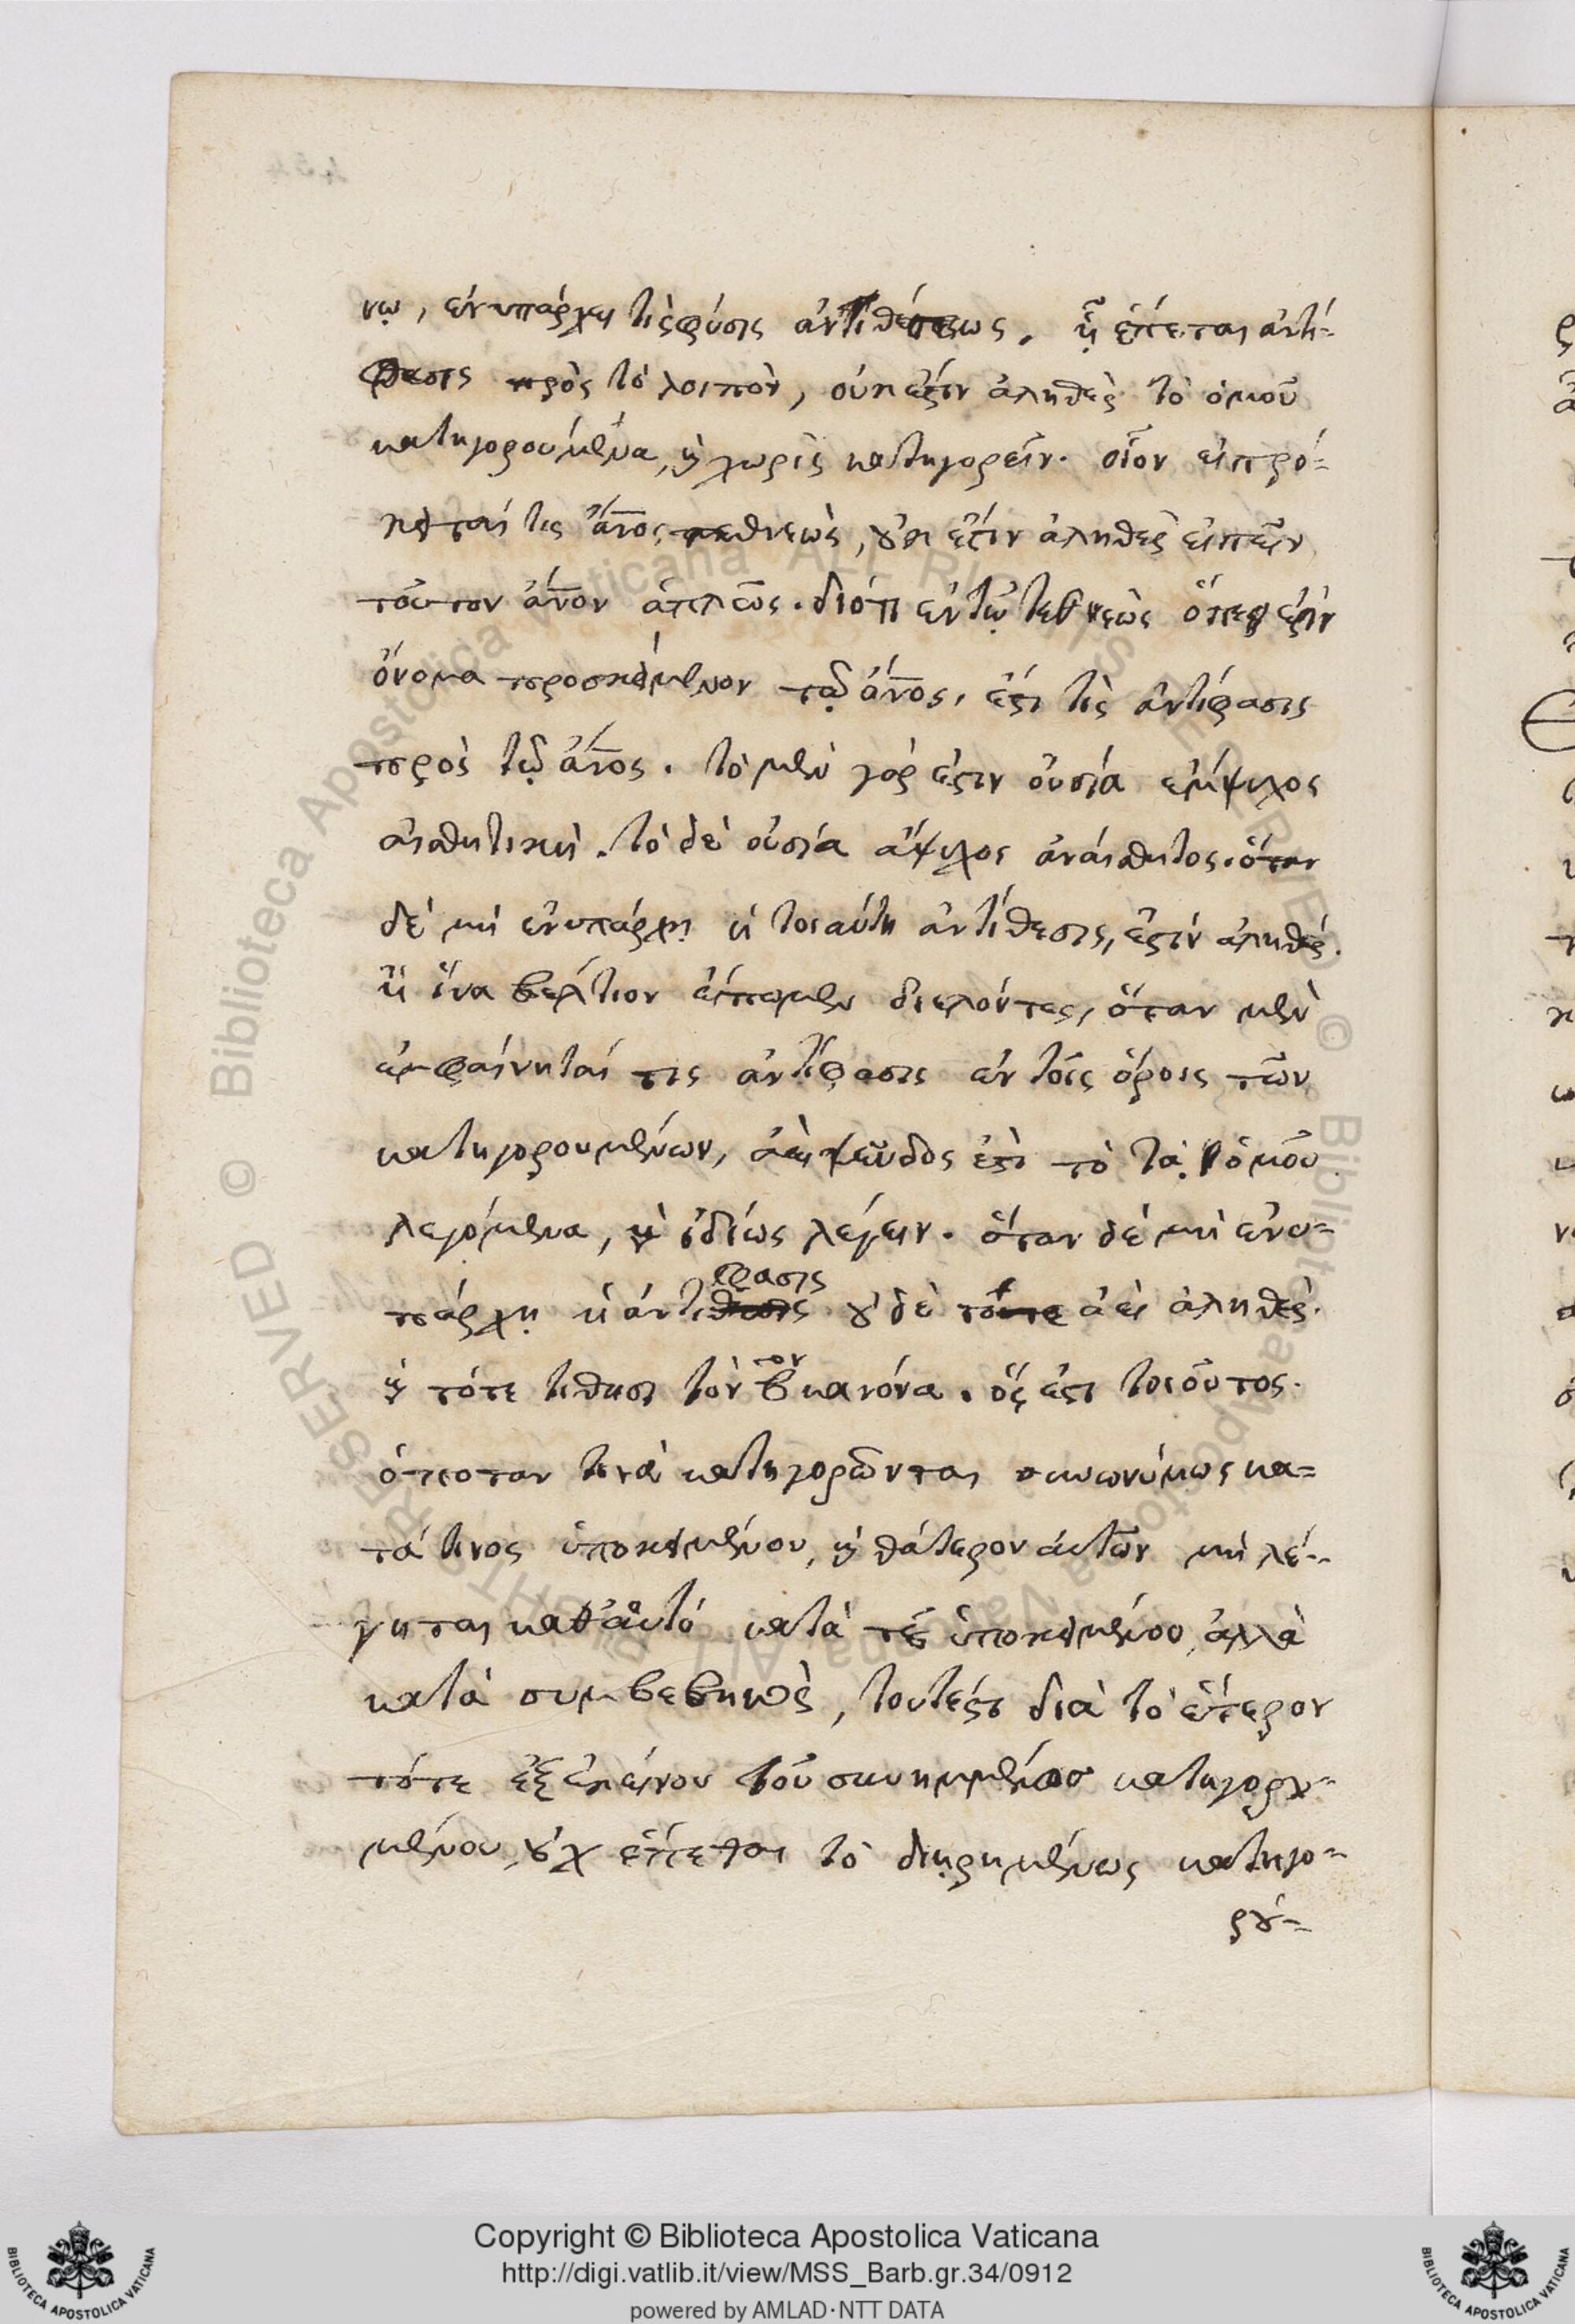 νῳ, ἐνυπάρχει τὶς φύσις ἀντιθέσεως. ᾗ ἕπεται ἀντί-
φασις πρὸς τὸ λοιπὸν, οὐκ ἔστιν ἀληθὲς τὸ ὁμοῦ
κατηγορούμενα, ϗ χωρὶς κατηγορεῖν. οἷον εἰ πρό-
κειταί τις ἄνος τεθνεὼς, οὐκ ἔστιν ἀληθὲς εἰπεῖν
τοῦτον ἄνον ἁπλῶς. διότι ἐν τῷ τεθνεὼς ὅπερ ἐστὶν
ὄνομα προσκείμενον τῷ ἄνος, ἐστί τις ἀντίφασις
πρὸς τῷ ἄνος. τὸ μὲν γάρ ἐστιν οὐσία ἔμψυχος
αἰσθητικὴ. τὸ δὲ οὐσία ἄψυχος ἀναίσθητος. ὅταν
δὲ μὴ ἐνυπάρχῃ ἡ τοιαύτη ἀντίθεσις, ἔστιν ἀληθές.
ἢ ἵνα βέλτιον εἴπωμεν διελόντες, ὅταν μὲν
ἐμφαίνηταί τις ἀντίφασις ἐν τοῖς ὅροις τῶν
κατηγορουμένων, ἀεὶ ψεῦδος ἐστὶ τὸ τὰ ὁμοῦ
λεγόμενα, ϗ ἰδίως λέγειν. ὅταν δὲ μὴ ἐνυ-
πάρχῃ ἡ ἀντίφασις οὐδὲ τότε ἀεὶ ἀληθές.
ϗ τότε τίθησι τὸν βον κανόνα. ὅς ἐστι τοιοῦτος.
ὁπόταν τινὰ κατηγορῶνται συνωνύμως κα-
τά τινος ὑποκειμένου, ϗ θάτερον αὐτῶν μὴ λέ-
γηται καθ' αὑτό κατὰ τοῦ ὑποκειμένου, ἀλλὰ
κατὰ συμβεβηκὸς, τουτέστι διὰ τὸ ἕτερον
τότε ἐξ ἐκείνου τοῦ συνημμένου κατηγορου-
μένου, οὐχ ἕπεται τὸ διῃρημένως κατηγο-
ρού-
Copyright © Biblioteca Apostolica Vaticana
http://digi.vatlib.it/view/MSS_Barb.gr.34/0912
powered by AMLAD·NTT DATA